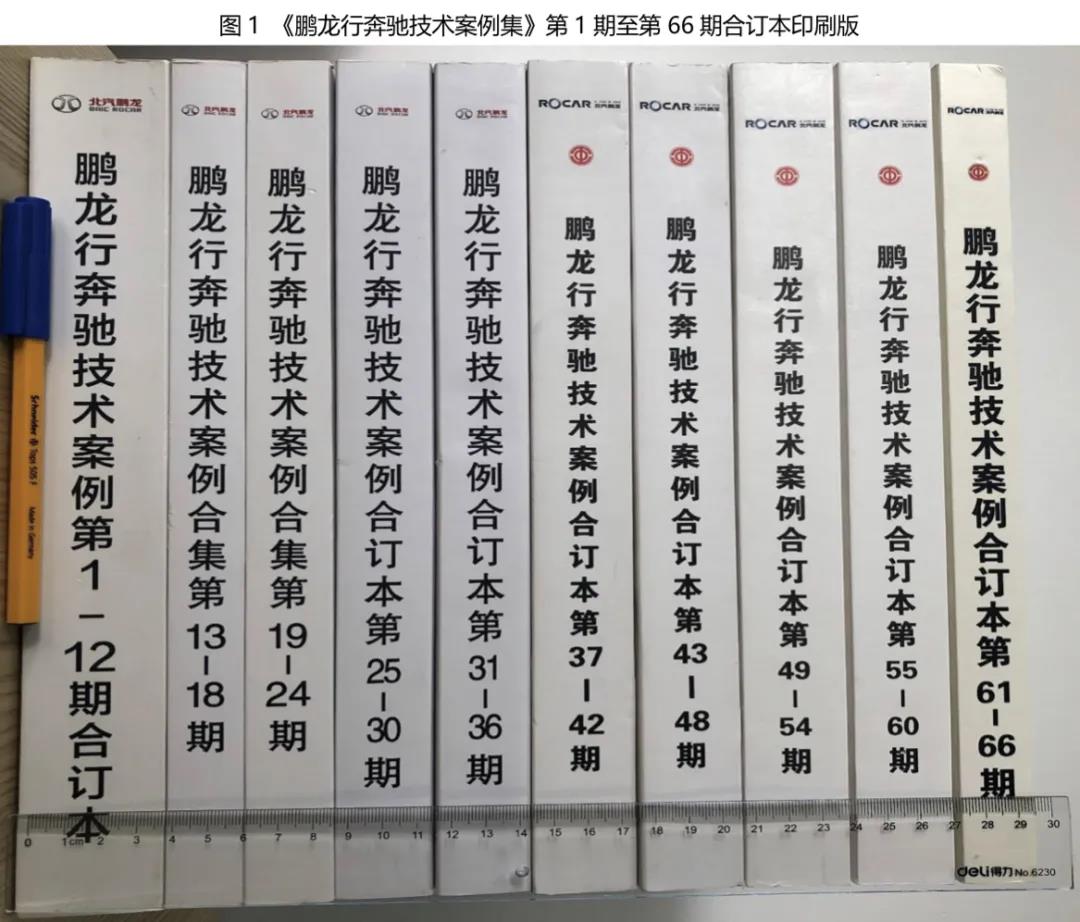 图1 《鹏龙行奔驰技术案例集》第1期至第66期合订本印刷版
北汽鹏龙
BAIC ROCAR
鹏龙行奔驰技术案例第1-12期合订本
北汽鹏龙
BAIC ROCAR
鹏龙行奔驰技术案例合集第13-18期
北汽鹏龙
BAIC ROCAR
鹏龙行奔驰技术案例合集第19-24期
北汽鹏龙
BAIC ROCAR
鹏龙行奔驰技术案例合订本第25-30期
北汽鹏龙
BAIC ROCAR
鹏龙行奔驰技术案例合订本第31-36期
ROCAR 北汽鹏龙
鹏龙行奔驰技术案例合订本第37-42期
ROCAR 北汽鹏龙
鹏龙行奔驰技术案例合订本第43-48期
ROCAR 北汽鹏龙
鹏龙行奔驰技术案例合订本第49-54期
ROCAR 北汽鹏龙
鹏龙行奔驰技术案例合订本第55-60期
ROCAR 北汽鹏龙
鹏龙行奔驰技术案例合订本第61-66期
Schneider Tops 505 F Made in Germany
0 1cm 2 3 4 5 6 7 8 9 10 11 12 13 14 15 16 17 18 19 20 21 22 23 24 25 26 27 28 29 30
deli得力 No.6230